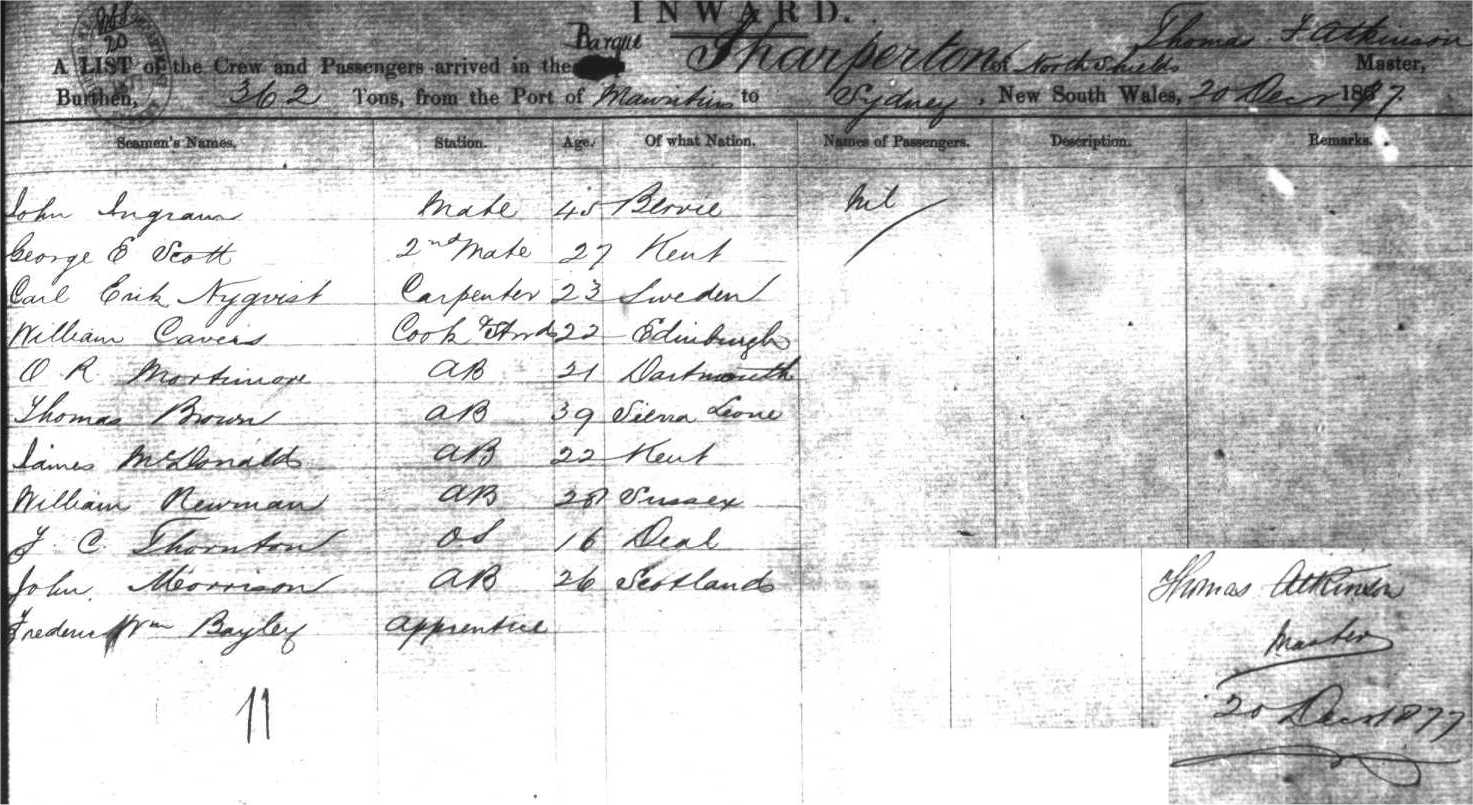 INWARD.
Barque
A LIST of the Crew and Passengers arrived in the Sharperton of North Shields Thomas F Atkinson Master,
Burthen, 362 Tons, from the Port of Mauritius to Sydney, New South Wales, 20 Decr 1877
Seamen's Names. Station. Age. Of what Nation. Names of Passengers. Description. Remarks.
John Ingram Mate 45 Bervie Nil
George E Scott 2nd Mate 27 Kent
Carl Erik Nyqvist Carpenter 23 Sweden
William Cavers Cook & Stwd 22 Edinburgh
O R Mortimore AB 21 Dartmouth
Thomas Brown AB 39 Sierra Leone
James McDonald AB 22 Kent
William Newman AB 28 Sussex
F C Thornton OS 16 Deal
John Morrison AB 26 Scotland
Frederick Wm Bayley Apprentice
11
Thomas Atkinson
Master
20 Decr 1877